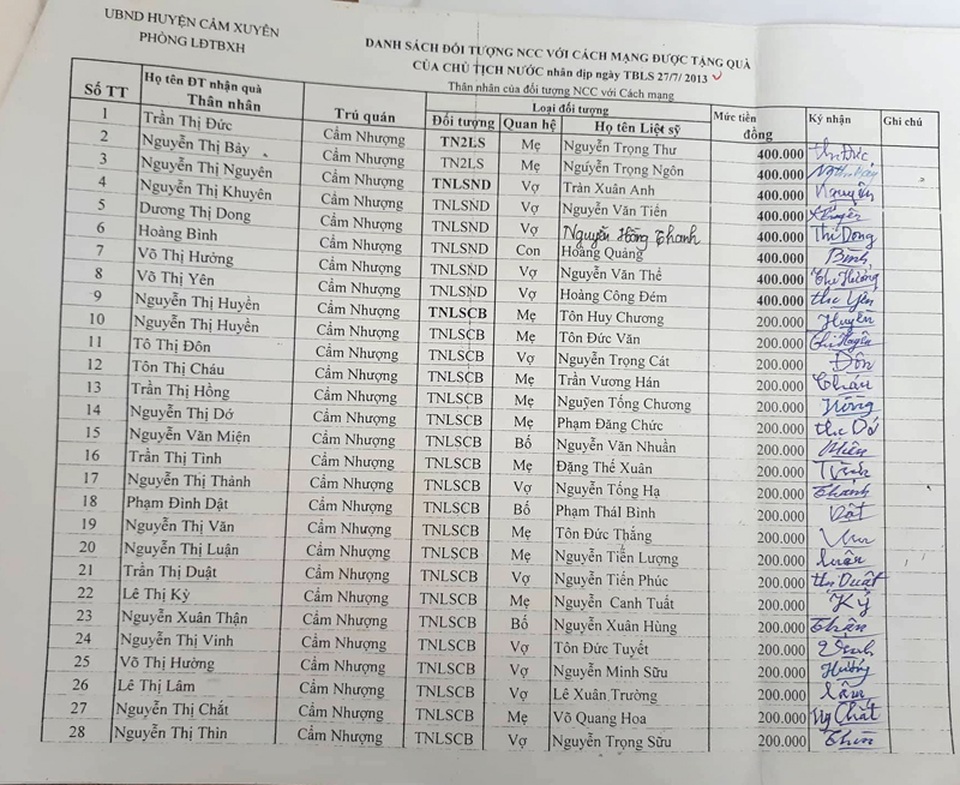 UBND HUYỆN CẨM XUYÊN
PHÒNG LĐTBXH
DANH SÁCH ĐỐI TƯỢNG NCC VỚI CÁCH MẠNG ĐƯỢC TẶNG QUÀ
CỦA CHỦ TỊCH NƯỚC nhân dịp ngày TBLS 27/7/ 2013
Thân nhân của đối tượng NCC với Cách mạng
Số TT Họ tên ĐT nhận quà Thân nhân Trú quán Loại đối tượng Đối tượng Quan hệ Họ tên Liệt sỹ Mức tiền đồng Ký nhận Ghi chú
1 Trần Thị Đức Cẩm Nhượng TN2LS Mẹ Nguyễn Trọng Thư 400.000 Thị Đức
2 Nguyễn Thị Bảy Cẩm Nhượng TN2LS Mẹ Nguyễn Trọng Ngôn 400.000
3 Nguyễn Thị Nguyên Cẩm Nhượng TNLSND Vợ Tràn Xuân Anh 400.000 Nguyên
4 Nguyễn Thị Khuyên Cẩm Nhượng TNLSND Vợ Nguyễn Văn Tiến 400.000 Khuyên
5 Dương Thị Dong Cẩm Nhượng TNLSND Vợ Nguyễn Hồng Thanh 400.000 Thị Dong
6 Hoàng Bình Cẩm Nhượng TNLSND Con Hoàng Quảng 400.000 Bình
7 Võ Thị Hưởng Cẩm Nhượng TNLSND Vợ Nguyễn Văn Thể 400.000 Thị Hưởng
8 Võ Thị Yên Cẩm Nhượng TNLSND Vợ Hoàng Công Đém 400.000 thị Yên
9 Nguyễn Thị Huyền Cẩm Nhượng TNLSCB Mẹ Tôn Huy Chương 200.000 Huyền
10 Nguyễn Thị Huyền Cẩm Nhượng TNLSCB Mẹ Tôn Đức Văn 200.000
11 Tô Thị Đôn Cẩm Nhượng TNLSCB Vợ Nguyễn Trọng Cát 200.000 Đôn
12 Tôn Thị Cháu Cẩm Nhượng TNLSCB Mẹ Trần Vương Hán 200.000 Cháu
13 Trần Thị Hồng Cẩm Nhượng TNLSCB Mẹ Nguỹen Tống Chương 200.000 Hồng
14 Nguyễn Thị Dớ Cẩm Nhượng TNLSCB Mẹ Phạm Đăng Chức 200.000 thị Dớ
15 Nguyễn Văn Miện Cẩm Nhượng TNLSCB Bố Nguyễn Văn Nhuần 200.000 Miện
16 Trần Thị Tình Cẩm Nhượng TNLSCB Mẹ Đặng Thế Xuân 200.000 Tình
17 Nguyễn Thị Thành Cẩm Nhượng TNLSCB Vợ Nguyễn Tống Hạ 200.000 Thành
18 Phạm Đình Dật Cẩm Nhượng TNLSCB Bố Phạm TháI Bình 200.000 Dật
19 Nguyễn Thị Văn Cẩm Nhượng TNLSCB Mẹ Tôn Đức Thắng 200.000
20 Nguyễn Thị Luận Cẩm Nhượng TNLSCB Mẹ Nguyễn Tiến Lượng 200.000 Luận
21 Trần Thị Duật Cẩm Nhượng TNLSCB Vợ Nguyễn Tiến Phúc 200.000 thị Duật
22 Lê Thị Kỳ Cẩm Nhượng TNLSCB Mẹ Nguyễn Canh Tuất 200.000 Kỳ
23 Nguyễn Xuân Thận Cẩm Nhượng TNLSCB Bố Nguyễn Xuân Hùng 200.000 Thận
24 Nguyễn Thị Vinh Cẩm Nhượng TNLSCB Vợ Tôn Đức Tuyết 200.000 Vinh
25 Võ Thị Hường Cẩm Nhượng TNLSCB Vợ Nguyễn Minh Sữu 200.000 Hường
26 Lê Thị Lâm Cẩm Nhượng TNLSCB Vợ Lê Xuân Trường 200.000 Lâm
27 Nguyễn Thị Chắt Cẩm Nhượng TNLSCB Mẹ Võ Quang Hoa 200.000 Ng Chắt
28 Nguyễn Thị Thìn Cẩm Nhượng TNLSCB Vợ Nguyễn Trọng Sữu 200.000 Thìn